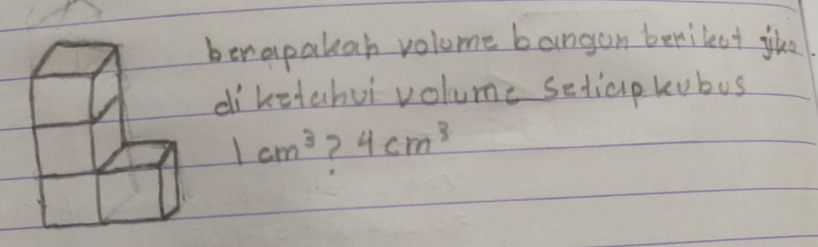 berapakah volume bangun berikut jika
diketahui volume setiap kubus
1 cm³? 4 cm³